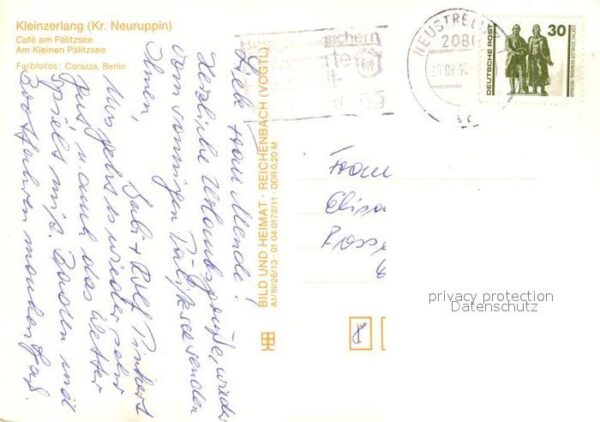 Kleinzerlang (Kr. Neuruppin)
Café am Pälitzsee
Am Kleinen Pälitzsee
Farbfotos: Corazza, Berlin
Liebe Frau Mende!
Herzliche Urlaubsgrüße, wieder
vom sonnigen Pälitzsee senden
Ihnen,
Gabi + Rolf
Uns geht es wieder sehr
gut, u. auch das Wetter
spielt mit. Baden und
Bootfahren machen Spaß.
BILD UND HEIMAT · REICHENBACH (VOGTL)
A1/III/26/13 · 01 04 0172/11 · DDR 0,20 M
NEUSTREL
2080
DEUTSCHE POST
30
Frau
Elisa
Posse
privacy protection
Datenschutz